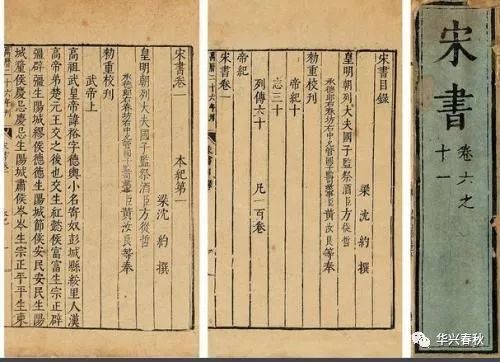 宋書
卷六之
十一
宋書目錄
梁沈約撰
皇明朝列大夫國子監祭酒臣方從哲
承德郎右春坊右中允管國子監司業事臣黃汝良等奉
勅重校刊
帝紀十
志三十
列傳六十
凡一百卷
帝紀
宋書卷一
萬曆二十六年刊
宋書卷一 本紀第一
梁沈約撰
皇明朝列大夫國子監祭酒臣方從哲
承德郎右春坊右中允管國子監司業事臣黃汝良等奉
勅重校刊
武帝上
高祖武皇帝諱裕字德輿小名寄奴彭城縣綏里人漢
高帝弟楚元王交之後也交生紅懿侯富富生宗正辟
彊辟彊生陽城繆侯德德生陽城節侯安民安民生陽
城釐侯慶忌慶忌生陽城肅侯岑岑生宗正平平生東
萬曆二十六年刊
华兴春秋